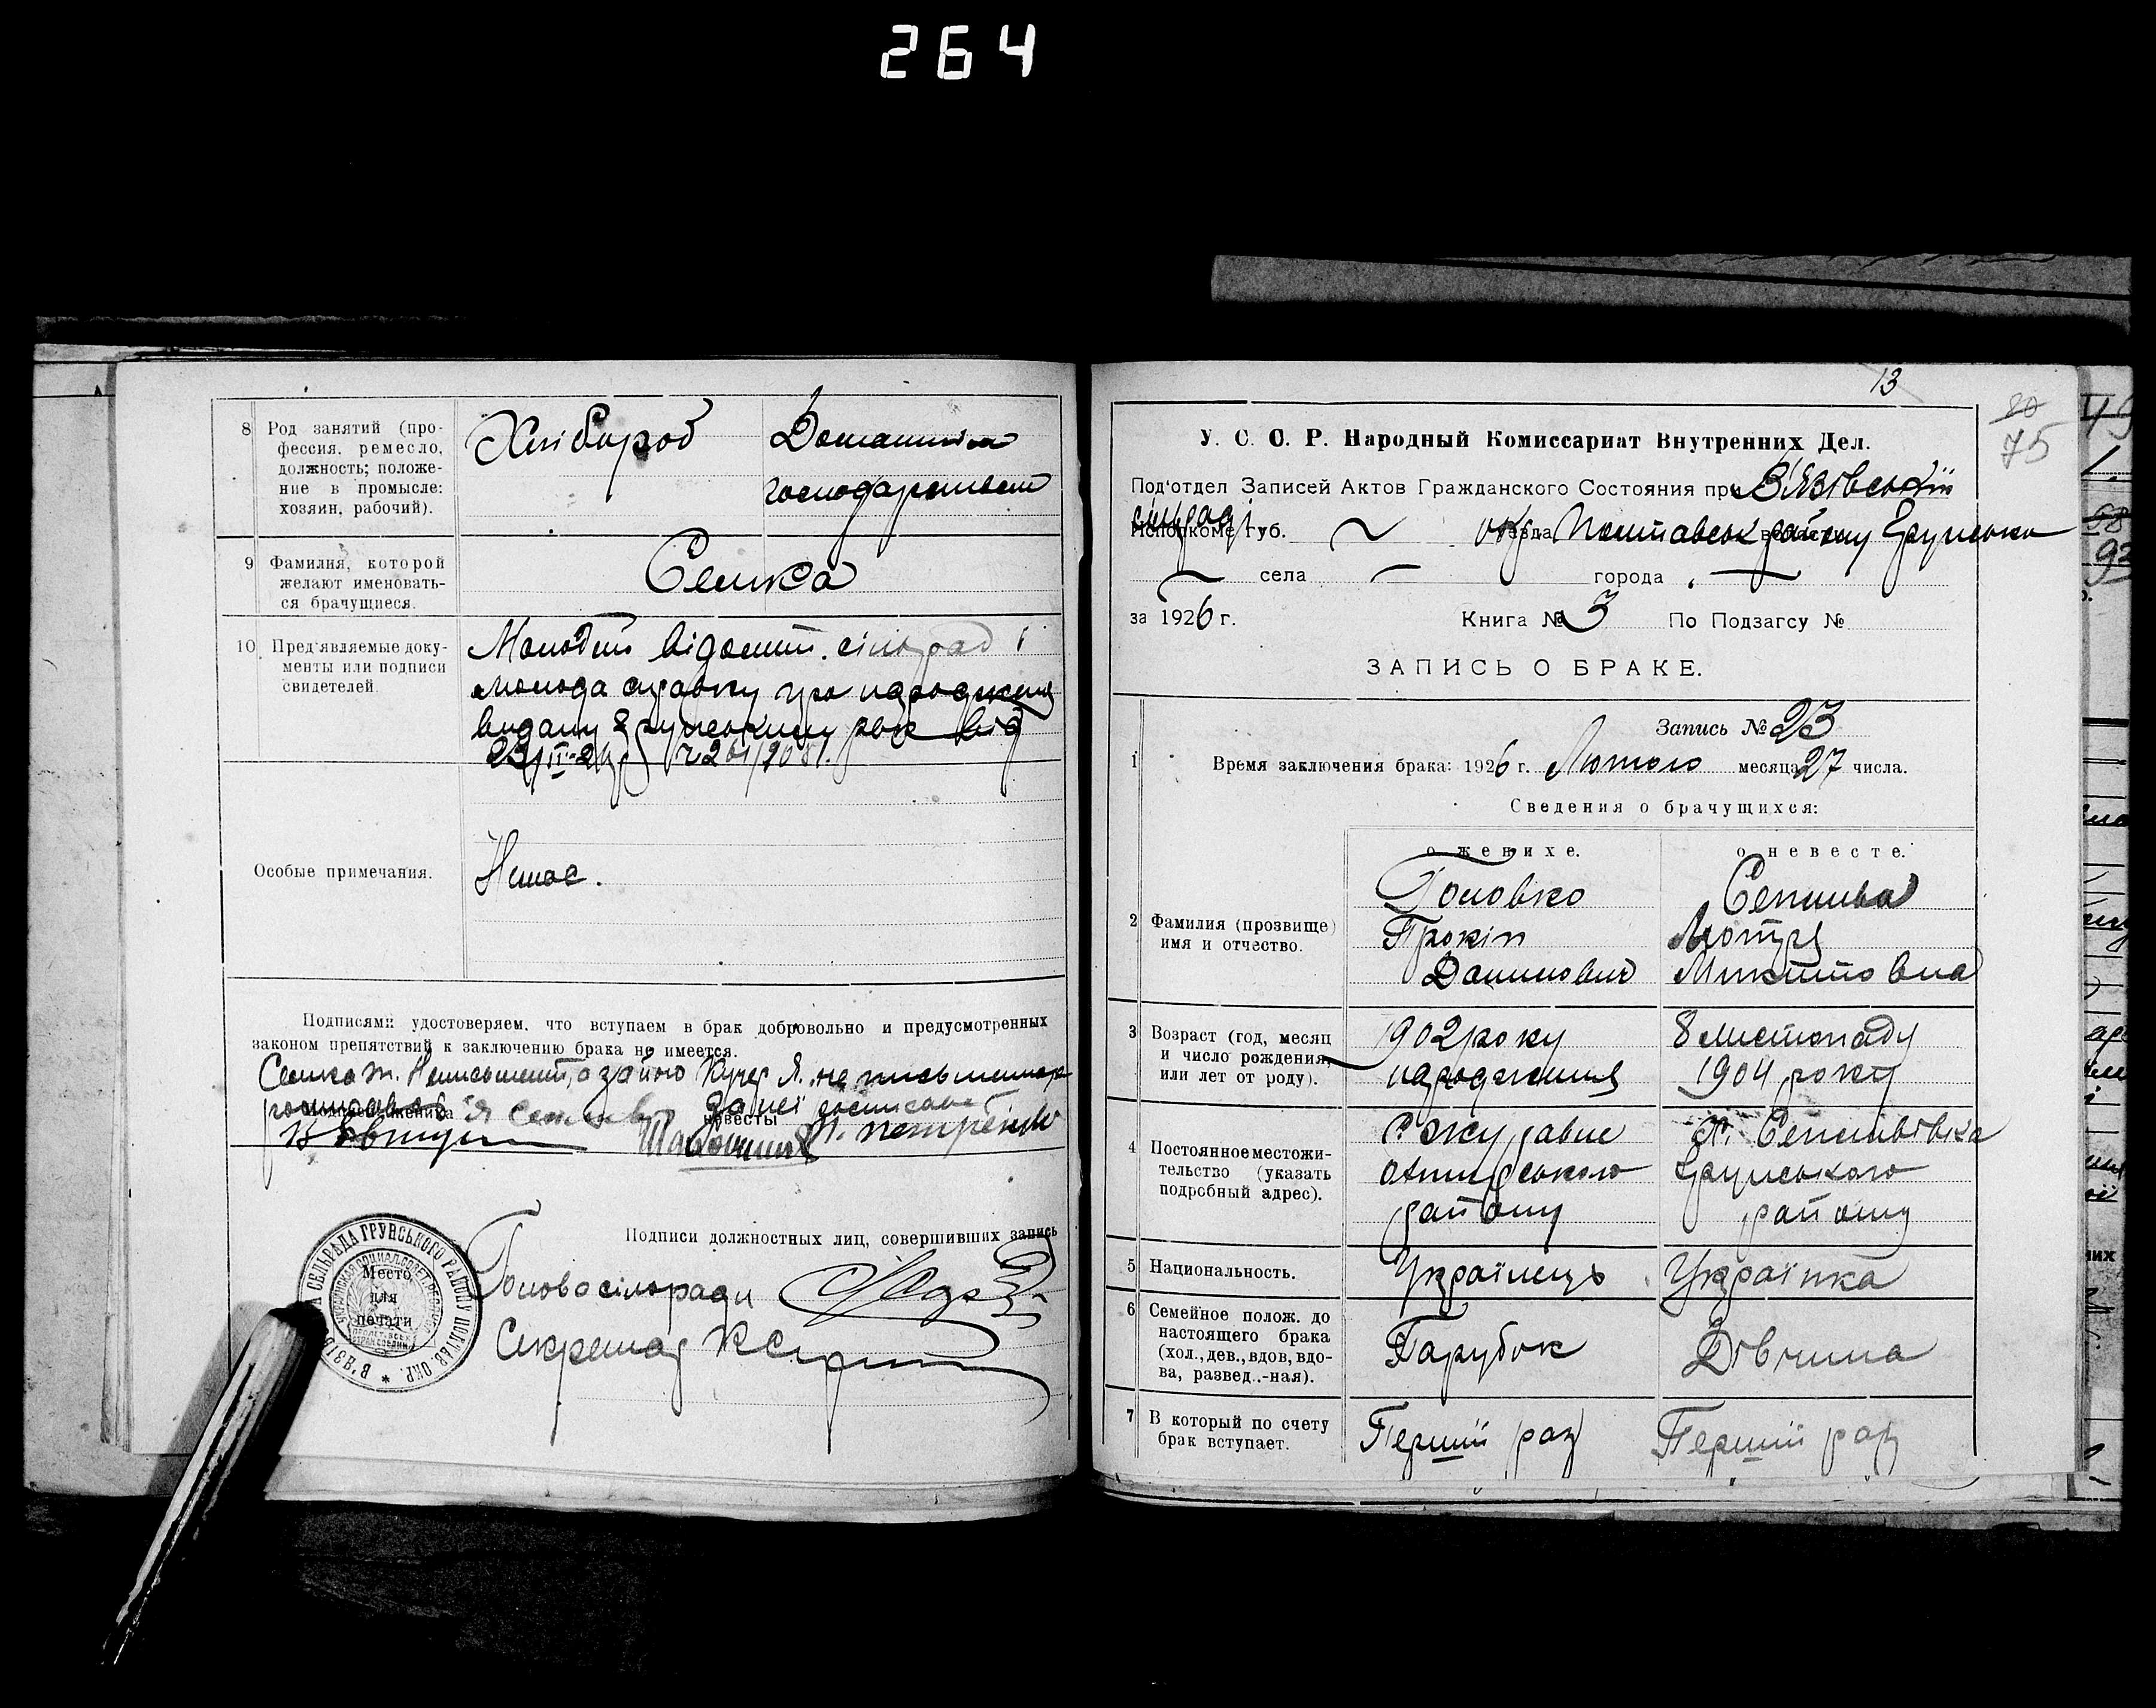 264
8 Род занятий (про-
фессия, ремесло,
должность; положе-
ние в промысле:
хозяин, рабочий).
Хлібороб
Домашнім
господарством
9 Фамилия, которой
желают именовать-
ся брачущиеся.
Семка
10 Пред'являемые доку-
менты или подписи
свидетелей.
Молодий відомит. сільрад і
молода справку про народження
видану Грунським рвк від
23/II-26 р
Особые примечания.
Немає.
Подписями удостоверяем, что вступаем в брак добровольно и предусмотренных
законом препятствий к заключению брака не имеется.
Семка неписьменний, а за його Кучер Я. не письменная
росписався за неї росписався
Подпись жениха невесты
Петренко
Подписи должностных лиц, совершивших запись
Место
для
печати
СЕЛЬРАДА ГРУНСЬКОГО РАЙОНУ ПОЛТАВ. ОКР. * В'ЯЗІВ
Голова сільради
Секретар
13
80
75
У. С. С. Р. Народный Комиссариат Внутренних Дел.
Под'отдел Записей Актов Гражданского Состояния при В'язівській
сільраді
Исполкоме губ. окр уезда Полтавськ району Грунсько
села города
за 1926 г. Книга № 3 По Подзагсу №
ЗАПИСЬ О БРАКЕ.
Запись № 23
1 Время заключения брака: 1926 г. Лютого месяца 27 числа.
Сведения о брачущихся:
о женихе. о невесте.
2 Фамилия (прозвище)
имя и отчество.
Головко
Прокіп
Данилович
Сепила
Мотря
Микитовна
3 Возраст (год, месяц
и число рождения,
или лет от роду).
1902 року
народження
8 листопаду
1904 року
4 Постоянное местожи-
тельство (указать
подробный адрес).
с. Журавне
Охтирського
району
х. Сепилівка
Грунського
району
5 Национальность.
Українець
Українка
6 Семейное полож. до
настоящего брака
(хол., дев., вдов, вдо-
ва, развед.-ная).
Парубок
Дівчина
7 В который по счету
брак вступает.
Перший раз
Перший раз